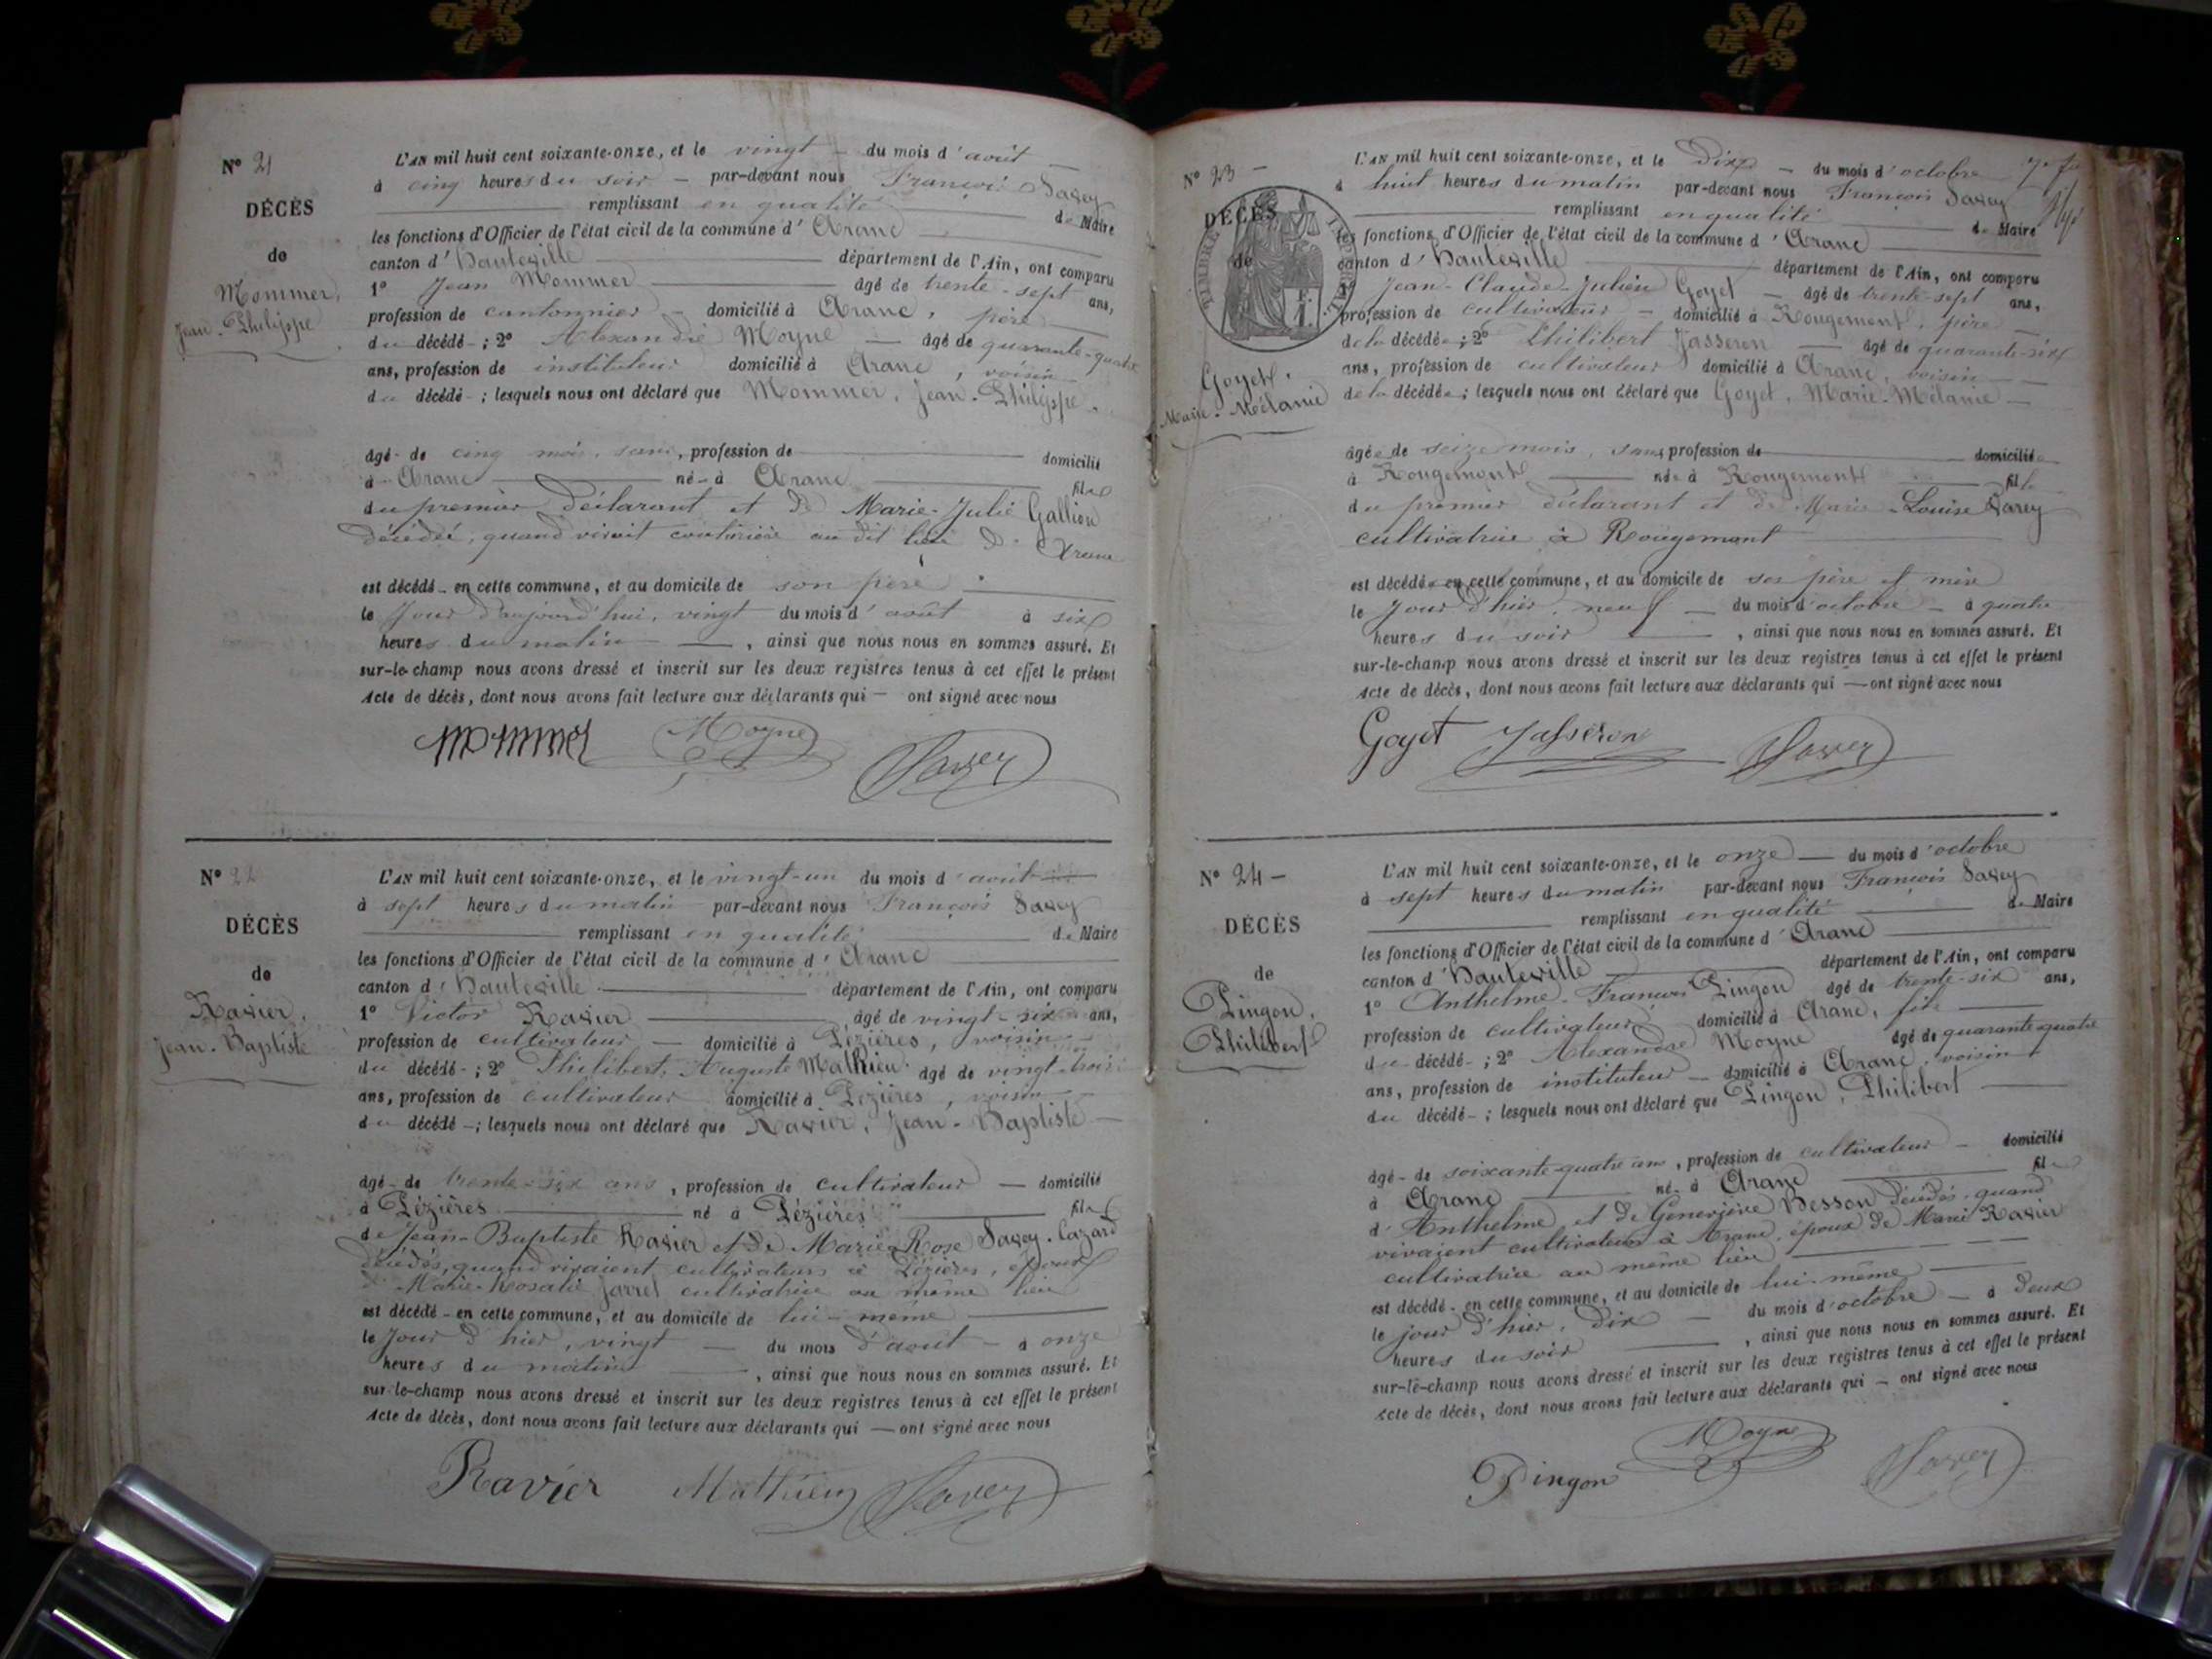 N° 21
DÉCÈS
de
Mommer,
Jean-Philippe
L'AN mil huit cent soixante-onze, et le vingt — du mois d'août —
à cinq heures du soir — par-devant nous François Savey
remplissant en qualité de Maire
les fonctions d'Officier de l'état civil de la commune d'Aranc
canton d'Hauteville département de l'Ain, ont comparu
1° Jean Mommer âgé de trente-sept ans,
profession de cantonnier — domicilié à Aranc, père
du décédé ; 2° Alexandre Moyne — âgé de quarante-quatre
ans, profession de instituteur domicilié à Aranc, voisin
du décédé ; lesquels nous ont déclaré que Mommer, Jean-Philippe
âgé de cinq mois, sans, profession de domicilié
à Aranc né à Aranc fils
du premier déclarant et de Marie-Julie Gallion
décédée, quand vivait couturière au dit lieu d'Aranc
est décédé en cette commune, et au domicile de son père
le jour d'aujourd'hui, vingt du mois d'août à six
heures du matin —, ainsi que nous nous en sommes assuré. Et
sur-le-champ nous avons dressé et inscrit sur les deux registres tenus à cet effet le présent
Acte de décès, dont nous avons fait lecture aux déclarants qui — ont signé avec nous
Mommer Moyne Savey
N° 22
DÉCÈS
de
Ravier,
Jean-Baptiste
L'AN mil huit cent soixante-onze, et le vingt-un du mois d'août
à sept heures du matin par-devant nous François Savey
remplissant en qualité de Maire
les fonctions d'Officier de l'état civil de la commune d'Aranc
canton d'Hauteville département de l'Ain, ont comparu
1° Victor Ravier âgé de vingt-six ans,
profession de cultivateur — domicilié à Pézières, voisin
du décédé ; 2° Philibert, Auguste Mathieu âgé de vingt-trois
ans, profession de cultivateur domicilié à Pézières, voisin
du décédé —; lesquels nous ont déclaré que Ravier, Jean-Baptiste —
âgé de trente-six ans, profession de cultivateur — domicilié
à Pézières né à Pézières fils
de Jean-Baptiste Ravier et de Marie-Rose Savey-Cazard
décédés, quand vivaient cultivateurs à Pézières, époux
de Marie-Rosalie Jarrel cultivatrice au même lieu
est décédé en cette commune, et au domicile de lui-même
le jour d'hier, vingt — du mois d'août — à onze
heures du matin, ainsi que nous nous en sommes assuré. Et
sur-le-champ nous avons dressé et inscrit sur les deux registres tenus à cet effet le présent
Acte de décès, dont nous avons fait lecture aux déclarants qui — ont signé avec nous
Ravier Mathieu Savey
N° 23 —
DÉCÈS
de
TIMBRE IMPÉRIAL
Goyet,
Marie-Mélanie
L'AN mil huit cent soixante-onze, et le dix — du mois d'octobre
à huit heures du matin par-devant nous François Savey
remplissant en qualité de Maire
les fonctions d'Officier de l'état civil de la commune d'Aranc
canton d'Hauteville département de l'Ain, ont comparu
Jean-Claude-Julien Goyet — âgé de trente-sept ans,
profession de cultivateur — domicilié à Rougemont, père
de la décédée ; 2° Philibert Jasseron âgé de quarante-six
ans, profession de cultivateur domicilié à Aranc, voisin
de la décédée ; lesquels nous ont déclaré que Goyet, Marie-Mélanie —
âgée de seize mois, sans profession de domiciliée
à Rougemont née à Rougemont fille
du premier déclarant et de Marie-Louise Savey
cultivatrice à Rougemont
est décédée en cette commune, et au domicile de ses père et mère
le jour d'hier, neuf — du mois d'octobre — à quatre
heures du soir, ainsi que nous nous en sommes assuré. Et
sur-le-champ nous avons dressé et inscrit sur les deux registres tenus à cet effet le présent
Acte de décès, dont nous avons fait lecture aux déclarants qui — ont signé avec nous
Goyet Jasseron Savey
N° 24 —
DÉCÈS
de
Pingon,
Philibert
L'AN mil huit cent soixante-onze, et le onze — du mois d'octobre
à sept heures du matin par-devant nous François Savey
remplissant en qualité de Maire
les fonctions d'Officier de l'état civil de la commune d'Aranc
canton d'Hauteville département de l'Ain, ont comparu
1° Anthelme-François Pingon âgé de trente-six ans,
profession de cultivateur domicilié à Aranc, fils
du décédé ; 2° Alexandre Moyne âgé de quarante-quatre
ans, profession de instituteur — domicilié à Aranc, voisin
du décédé ; lesquels nous ont déclaré que Pingon, Philibert
âgé de soixante-quatre ans, profession de cultivateur — domicilié
à Aranc né à Aranc fils
d'Anthelme et de Geneviève Besson décédés, quand
vivaient cultivateurs à Aranc, époux de Marie Ravier
cultivatrice au même lieu
est décédé en cette commune, et au domicile de lui-même
le jour d'hier, dix — du mois d'octobre — à deux
heures du soir, ainsi que nous nous en sommes assuré. Et
sur-le-champ nous avons dressé et inscrit sur les deux registres tenus à cet effet le présent
Acte de décès, dont nous avons fait lecture aux déclarants qui — ont signé avec nous
Pingon Moyne Savey